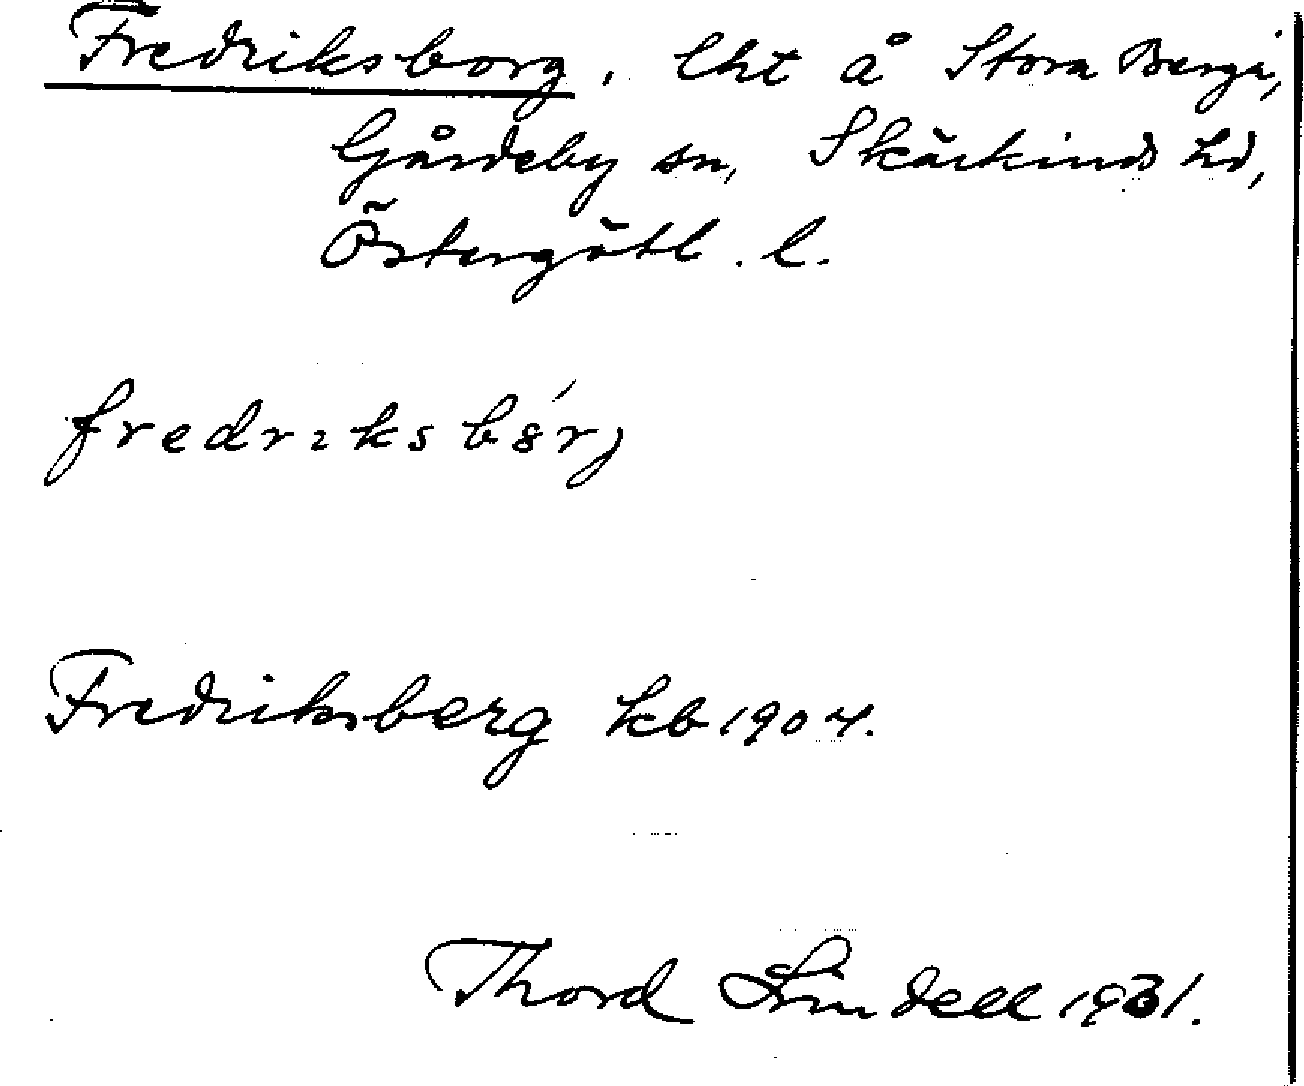 Fredriksborg, lht å Stora Berga,
Gårdeby sn, Skärkinds hd,
Östergötl. l.
fredrıksbȣ́rj
Fredriksberg kb 1904.
Thord Lindell 1931.